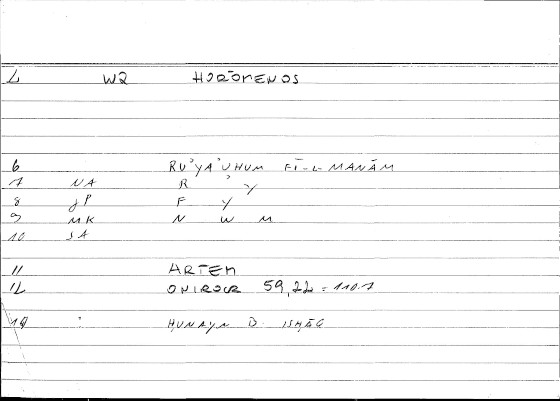 2 WR HORŌMENOS
6 RU'YA'UHUM FĪ-L-MANĀM
7 NA R ' Y
8 JP F Y
9 MK N W M
10 SA
11 ARTEM
12 ONIROCR 59,22 = 110.7
14 : ḤUNAYN B. ISḤĀQ